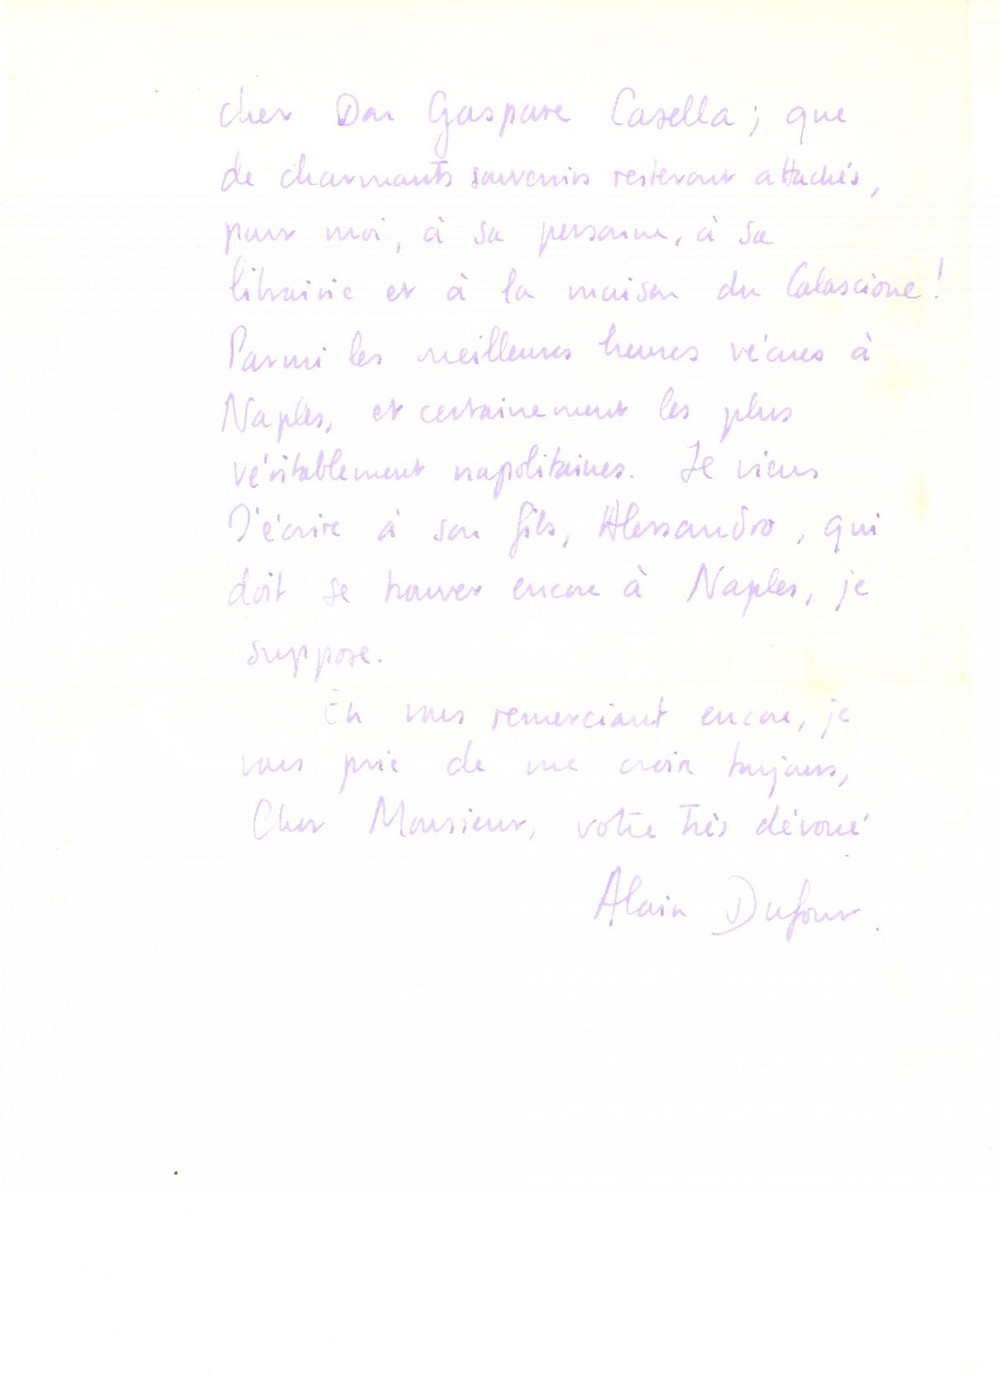 cher Don Gaspare Casella ; que
de charmants souvenirs resteront attachés,
pour moi, à sa personne, à sa
librairie et à la maison du Calascione !
Parmi les meilleures heures vécues à
Naples, et certainement les plus
véritablement napolitaines. Je viens
d'écrire à son fils, Alessandro, qui
doit se trouver encore à Naples, je
suppose.
En vous remerciant encore, je
vous prie de me croire toujours,
Cher Monsieur, votre très dévoué
Alain Dufour.